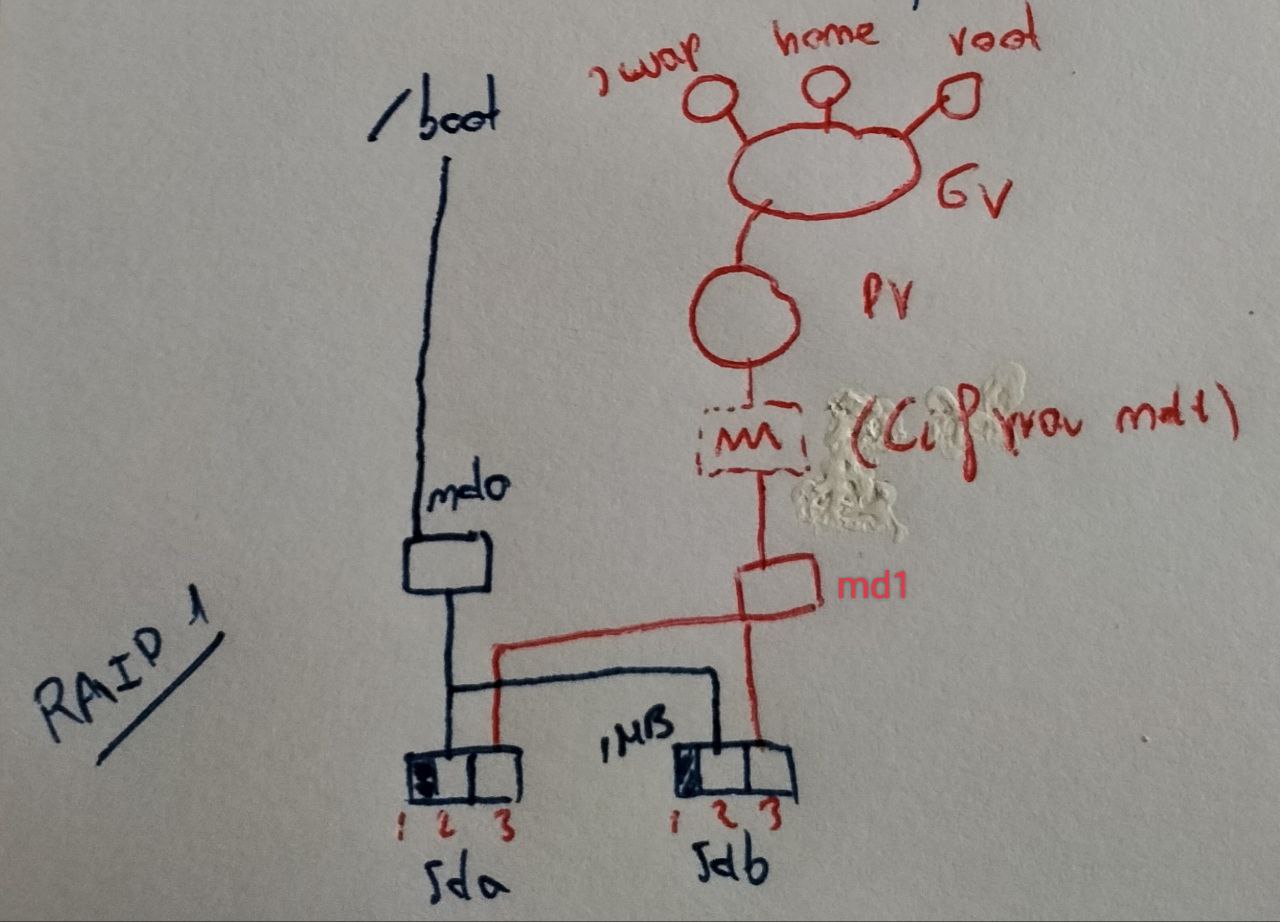 swap home root
/boot
GV
PV
(Cifrar md1)
md0
md1
RAID 1
1MB
1 2 3
1 2 3
sda
sdb